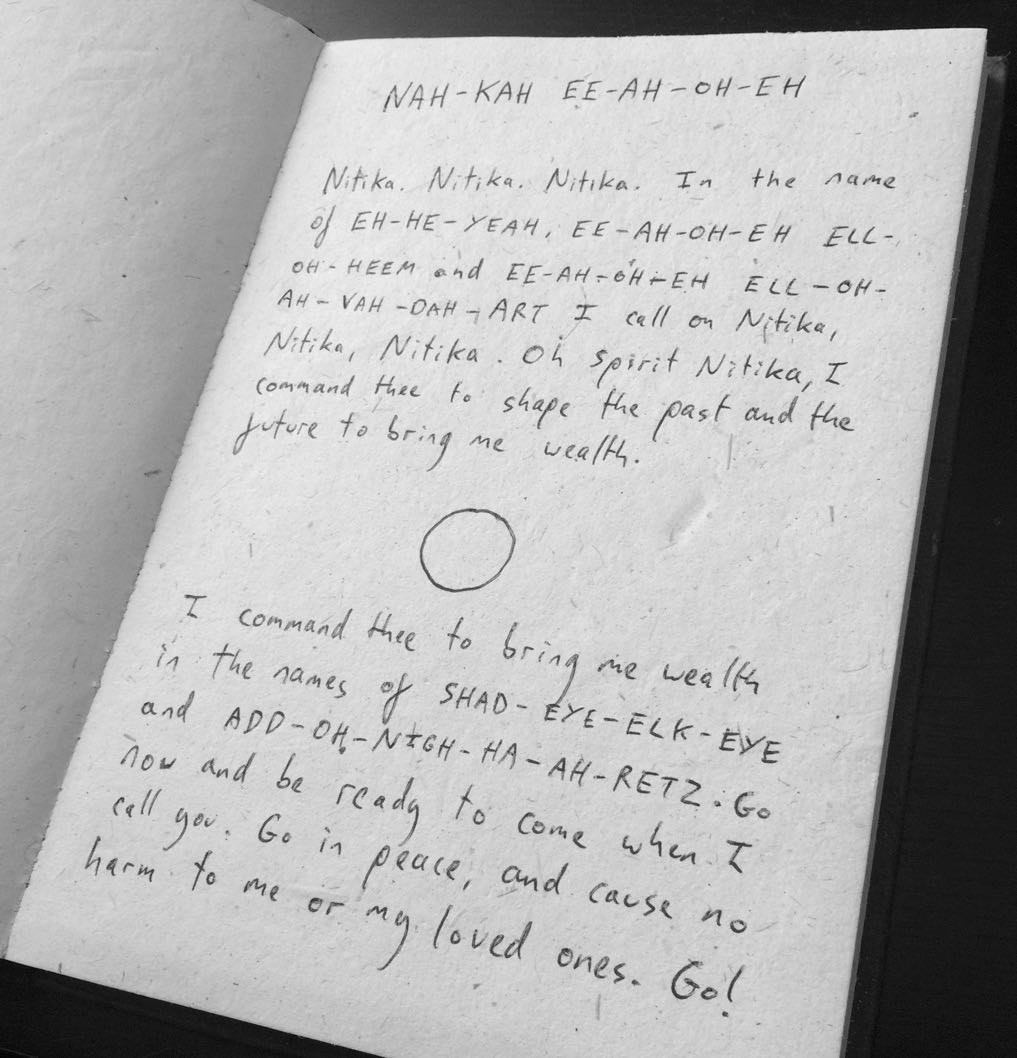 NAH-KAH EE-AH-OH-EH
Nitika. Nitika. Nitika. In the name
of EH-HE-YEAH, EE-AH-OH-EH ELL-
OH-HEEM and EE-AH-OH-EH ELL-OH-
AH-VAH-DAH-ART I call on Nitika,
Nitika, Nitika. Oh spirit Nitika, I
command thee to shape the past and the
future to bring me wealth.
I command thee to bring me wealth
in the names of SHAD-EYE-ELK-EYE
and ADD-OH-NIGH-HA-AH-RETZ. Go
now and be ready to come when I
call you. Go in peace, and cause no
harm to me or my loved ones. Go!